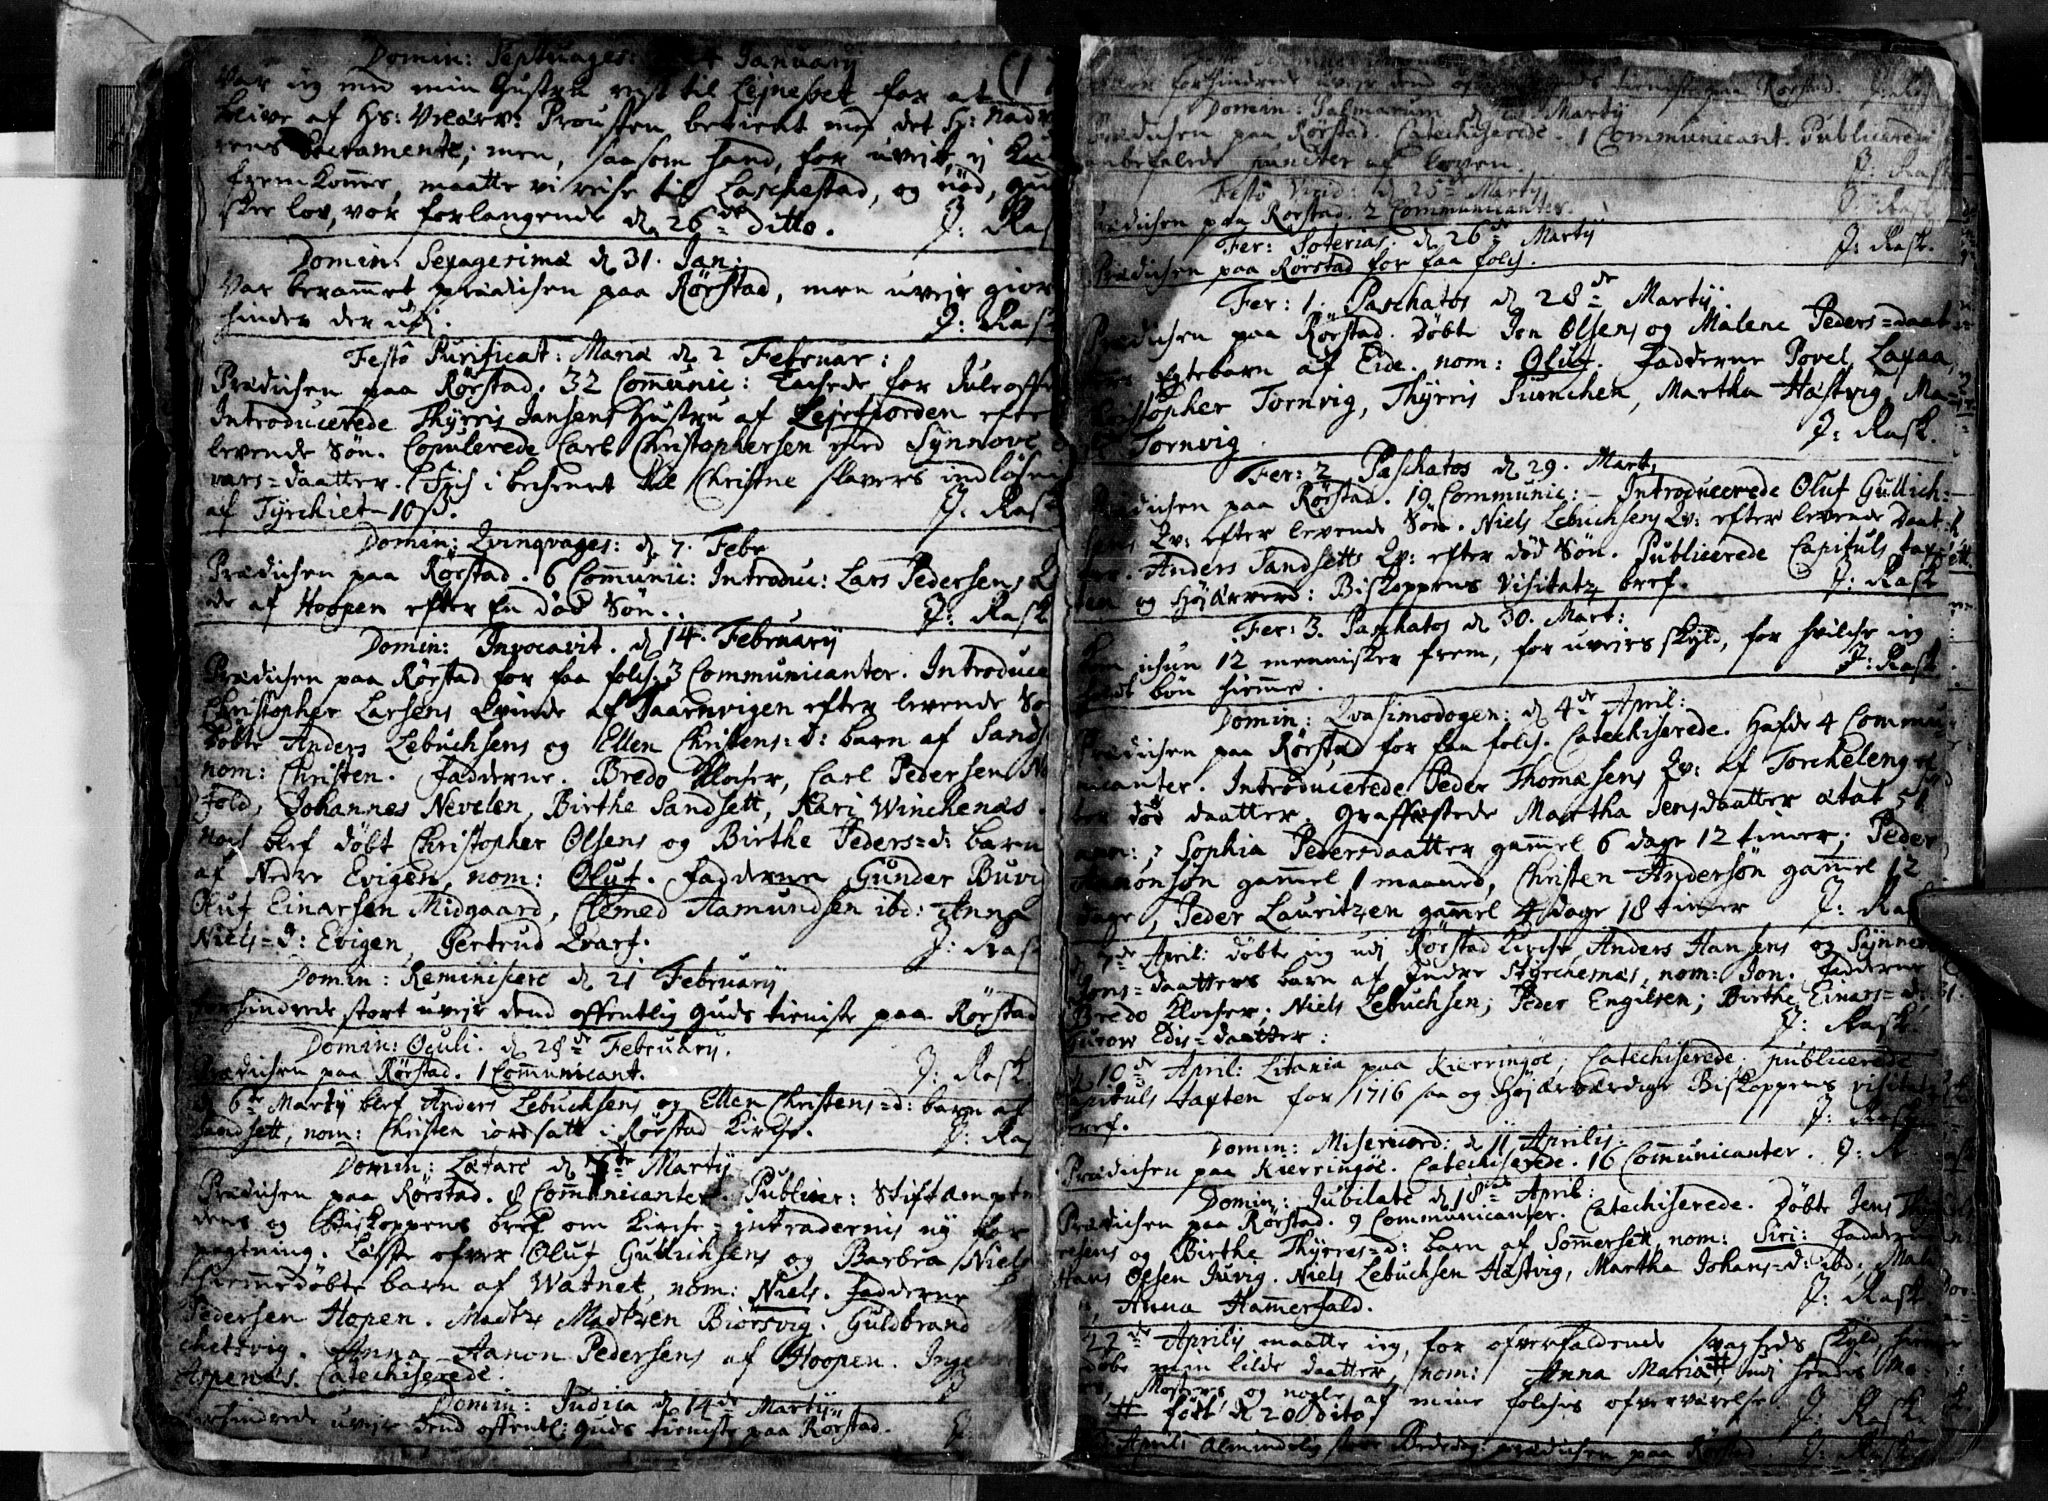 Domin: Septuages: 24 January
(1
Var ieg med min Hustru rest til Lejnesset for at
blive af Hs: Velærv: Prousten betient med det H: Nadv
rens Sacramente; men, saasom hand, for uvejr, ej kun
fremkomme, maatte vi reise til Laschestad, og nød, gud
skee lov, vor forlangende d 26de ditto. J: Rask
Domin: Sexagesimæ d 31. Jan:
Var berammet prædichen paa Rørstad, men uvejr gior
hinder der udj. J: Rask
Festo Purificat: Mariæ d 2 Februar:
Prædichen paa Rørstad. 32 Communic: Tachede for Juleoffer
Introducerede Thÿrris Jansens Hustru af Lejrfiorden efter
levende Søn. Copulerede Carl Christophersen med Synnove
vars=daatter. Sich i bechenet til Christne slavers indløsni
af Tyrchiet - 10 ß. J: Rask
Domin: Qvinqvages: d 7. Febr
Prædichen paa Rørstad. 6 Communic: Introduc: Lars Pedersens Q
de af Hoopen efter En død Søn. J: Rask
Domin: Invocavit. d 14. February
Prædichen paa Rørstad for faa folch. 3 Communicanter. Introduce
Christopher Larsens Qvinde af Taarnvigen efter levende Sø
Døbte Anders Lebuchsens og Ellen Christens=d: barn af Sands
nom: Christen. Fadderne. Bredo Klocher, Carl Pedersen No
fold, Johannes Nevelen, Birthe Sandsett, Kari Winchenæs.
Noch blef døbt Christopher Olsens og Birthe Peders=d: barn
af Nedre Evigen, nom: Oluf. Fadderne Gunder Buvi
Oluf Einarsen Midgaard, Clemed Aamundsen ibd: Anna
Niels=d: Evigen, Gertrud Qvarf. J: Rask
Domin: Reminiscere d 21 February
Forhindrede stort uvejr dend offentlig Guds tieniste paa Rørstad
Domin: Oculi. d 28de February.
Prædichen paa Rørstad. 1 Communicant. J: Rask
D 6te Marty blef Anders Lebuchsens og Ellen Christens=d: barn af
Sandsett, nom: Christen iordsatt i Rørstad Kirche. J: Ras
Domin: Lætare d 7de Marty
Prædichen paa Rørstad. 8 Communicanter. Publicer: Stiftamptm
dens og Biskoppens bref om Kirche=intradernis ny for
pagtning. Læste ofver Oluf Gullichsens og Barbra Niels
hiemmedøbte barn af Watnet, nom: Niels. Fadderne
Pedersen Hopen. Madtz Madtzen Biørsvig. Guldbrand
chettvig. Anna Aanon Pedersens af Hoopen. Ingebor
Aspenæs. Catechiserede. J
Domin: Judica d 14de Marty
Forhindrede uvejr dend offentl: Guds tieniste paa Rørstad. J:
forhindrede uvejr dend offentlig Guds tieniste paa Rørstad. J: Rask
Domin: Palmarum d Marty
Prædichen paa Rørstad. Catechiserede. 1 Communicant. Publicerede
anbefalede puncter af loven. J: Rask
Festo Virid: d 25de Marty
Prædichen paa Rørstad. 2 Communicanter. J: Rask
Fer: Soterias: d 26de Marty
Prædichen paa Rørstad for faa folch. J: Rask.
Fer: 1. Paschatos d 28de Marty.
Prædichen paa Rørstad. Døbte Jon Olsens og Malene Peders=daat
ters Egtebarn af Eide. nom: Oluf. Fadderne Povel Laxaa,
Christopher Tornvig, Thÿrris Tumchen, Martha Hæstvig, Ma=
Tornvig. J: Rask.
Fer: 2 Paschatos d 29. Mart:
Prædichen paa Rørstad. 19 Communic: - Introducerede Oluf Gullich=
sens Qv: efter levende Søn. Niels Lebuchsens Qv: efter levende Daat
ter. Anders Sandsetts Qv: efter død Søn. Publicerede Capituls tax
ten og Højærverd: Biskoppens Visitatz bref. J: Rask
Fer: 3. Paschatos d 30. Mart:
Kom ichun 12 mennisker frem, for uveirs skyld, for hvilche ieg
holdt bøn hiemme. J: Rask
Domin: Qvasimodogen: d 4de April:
Prædichen paa Rørstad for faa folch. Catechiserede. Hafde 4 Commu
nicanter. Introducerede Peder Thomæsens Qv: af Torchelenget
ter død daatter. Graffæstede Martha Jensdaatter ætat 51
ann:; Sophia Pedersdaatter gammel 6 dage 12 timer; Peder
Aanonsøn gammel 1 maaned, Christen Andersøn gammel 12
dage, Peder Lauritzen gammel 4 dage 18 timer J: Rask
D 7de April: døbte ieg udj Rørstad Kirche Anders Hansens og Synneve
Jens=daatters barn af Indre Styrchesnæs, nom: Jon. Fadderne
Bredo Klocher; Niels Lebuchsen; Peder Engilsen; Birthe Einars=d:
Gurow Edis=daatter: J: Rask.
D 10de April: Litania paa Kierringøe; Catechiserede; publicerede
Capituls taxten for 1716 saa og Højærværdige Biskoppens visitatz
bref. J: Rask
Domin: Misericord: d 11 Aprilis.
Prædichen paa Kierringøe. Catechiserede. 16 Communicanter. J: R
Domin: Jubilate d 18de April:
Prædichen paa Rørstad. 9 Communicanter. Catechiserede. Døbte Jens Thÿr
resens og Birthe Thÿrres=d: barn af Sommerset, nom: Siri: Fadderne
Hans Olsen Juvig. Niels Lebuchsen Hæstvig, Martha Johans=d: ibd, Male
Anna Hammerfald. J: Rask
22de Aprilis maatte ieg, for ofverfaldende svagheds skyld, hiemme
døbe min lilde daatter, nom: Anna Maria # udj hendes Mo=
Mosters og nogle af mine folchis ofverværelse. J: Rask.
# født d 20 dito
April: Almindelig store Bededag: prædichen paa Rørstad. J: Rask